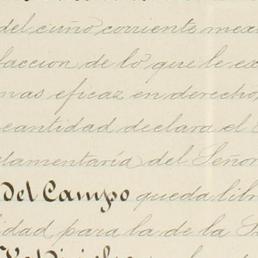 del cuño corriente mex
faccion de lo que le ex
mas eficaz en derecho,
cantidad declara el
lamentaría del Señor
Del Campo queda lib
idad para la de la